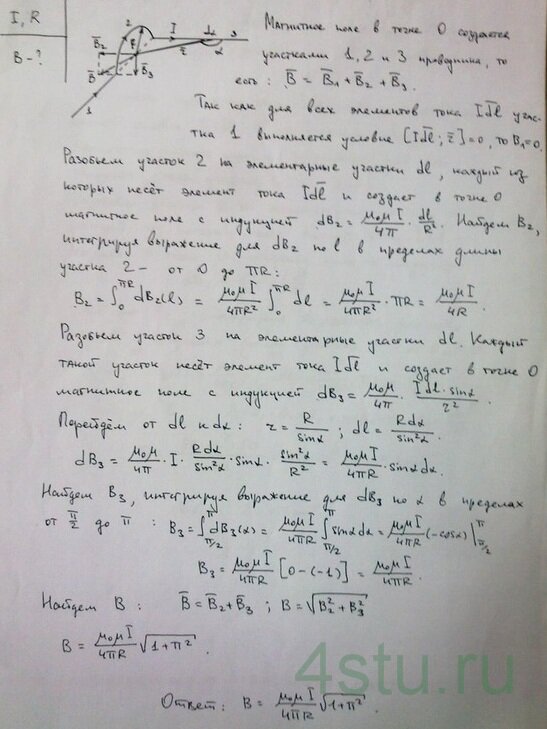 I, R
B - ?
2 I dα 3
B̄₂ R r α
B̄ 0 B̄₃
1
Магнитное поле в точке О создается
участками 1, 2 и 3 проводника, то
есть: B̄ = B̄₁ + B̄₂ + B̄₃.
Так как для всех элементов тока Idl̄ учас-
тка 1 выполняется условие [Idl̄; r̄] = 0, то B₁=0.
Разобьем участок 2 на элементарные участки dl, каждый из
которых несёт элемент тока Idl̄ и создает в точке О
магнитное поле с индукцией dB₂ = μ₀μI/4π · dl/R². Найдем B₂,
интегрируя выражение для dB₂ по l в пределах длины
участка 2 – от 0 до πR:
B₂ = ∫₀^πR dB₂(l) = μ₀μI/4πR² ∫₀^πR dl = μ₀μI/4πR² · πR = μ₀μI/4R.
Разобьем участок 3 на элементарные участки dl. Каждый
такой участок несёт элемент тока Idl̄ и создает в точке О
магнитное поле с индукцией dB₃ = μ₀μ/4π · Idl·sinα/r².
Перейдём от dl к dα: r = R/sinα; dl = Rdα/sin²α.
dB₃ = μ₀μ/4π · I · Rdα/sin²α · sinα · sin²α/R² = μ₀μI/4πR · sinα dα.
Найдем B₃, интегрируя выражение для dB₃ по α в пределах
от π/2 до π: B₃ = ∫_π/2^π dB₃(α) = μ₀μI/4πR ∫_π/2^π sinα dα = μ₀μI/4πR (-cosα)|_π/2^π
B₃ = μ₀μI/4πR [0-(-1)] = μ₀μI/4πR.
Найдем B: B̄ = B̄₂ + B̄₃; B = √(B₂² + B₃²)
B = μ₀μI/4πR √(1+π²).
4stu.ru
Ответ: B = μ₀μI/4πR √(1+π²).